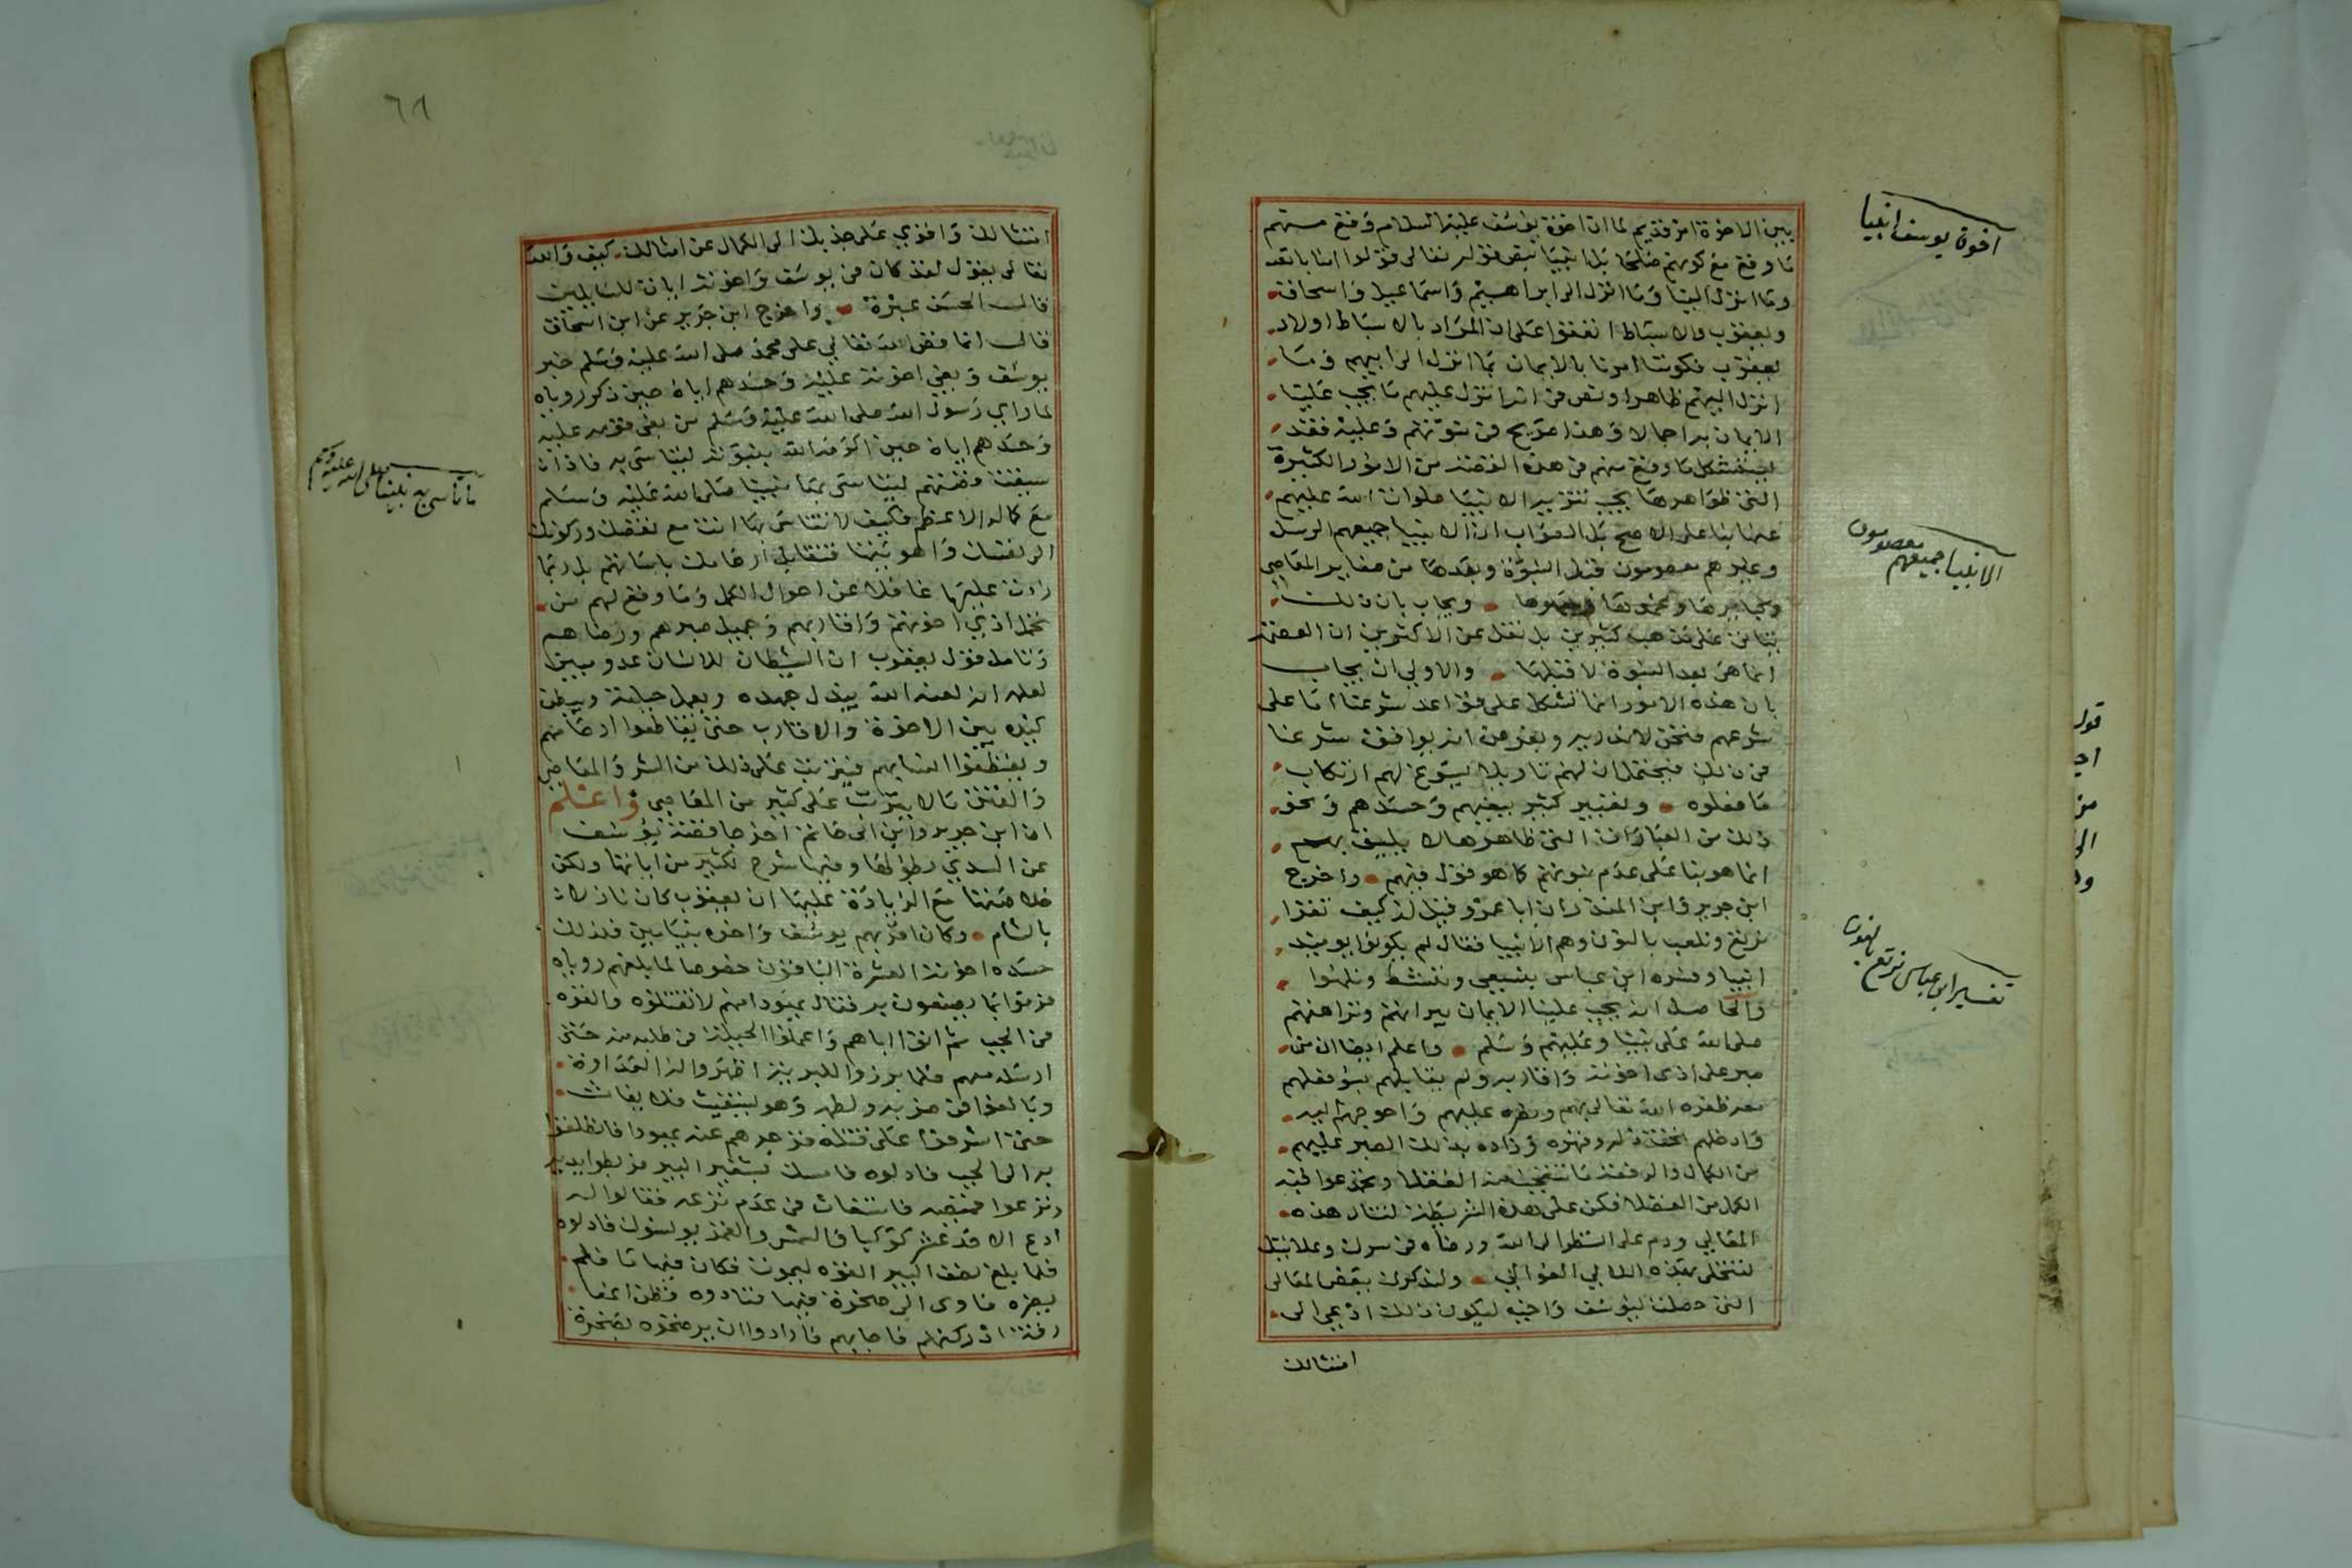 اخوة يوسف انبيا
بين الاخوة امر قديم لما ان اخوة يوسف عليه السلام وقع منهم
ما وقع مع كونهم صلحا بل انبيا بنص قوله تعالى قولوا امنا بالله
وما انزل الينا وما انزل الى ابراهيم واسماعيل واسحاق
ويعقوب والاسباط اتفقوا على ان المراد بالاسباط اولاد
يعقوب فكوننا امرنا بالايمان بما انزل الى ابيهم وما
انزل اليهم ظاهر او نص في انه انزل عليهم ما يجب علينا
الايمان به اجمالا وهذا صريح في نبوتهم وعليه فقد
يستشكل ما وقع منهم في هذه القصة من الامور الكثيرة
التي ظواهرها يجب تنزيه الانبيا صلوات الله عليهم
عنها بنا على الاصح بل الصواب ان الانبيا جميعهم الرسل
الانبيا جميعهم معصومون
وغيرهم معصومون قبل النبوة وبعدها من صغاير المعاصي
وكبايرها وعمدها وسهوها ويجاب بان ذلك
بنا من على مذهب كثيرين بل نقل عن الاكثرين ان العصمة
انما هي بعد النبوة لا قبلها والاولى ان يجاب
بان هذه الامور انما تشكل على قواعد شرعنا اما على
شرعهم فنحن لا ندريه وبفرض انه يوافق شرعنا
في ذلك فيحتمل ان لهم تاويلا يسوغ لهم ارتكاب
ما فعلوه وتعبير كثير ببغيهم وحسدهم ونحو
ذلك من العبارات التي ظاهرها لا يليق بهم
انما هو بنا على عدم نبوتهم كما هو قول فيهم واخرج
ابن جرير وابن المنذر ان ابا عمرو قيل له كيف تقرا
تفسير ابن عباس نرتع نلهوا
نرتع ونلعب بالنون وهم الانبيا فقال لم يكونوا يومئذ
انبيا وفسره ابن عباس بنسعى وننشط ونلهوا
والحاصل انه يجب علينا الايمان ببراتهم ونزاهتهم
صلى الله على نبينا وعليهم وسلم واعلم ايضا ان من
صبر على اذى اخوته واقاربه ولم يقابلهم بسوء فعلهم
ظفره الله تعالى بهم ونصره عليهم واحوجهم اليه
وادخلهم تحت ذله وقهره وزاده بذلك الصبر عليهم
من الكمال والرفعة ما تتعجب منه العقلا ويحمد عواقبه
الكمل من الفضلا فكن على هذه الشريطة لتنال هذه
المعالي ودم على النظر الى الله ورضاه في سرك وعلانيتك
لتتحلى بهذه اللالي الغوالي ولنذكرك ببعض المعالي
التي حصلت ليوسف وابيه ليكون ذلك ادعى الى
امتثالك
٦٨
امتثالك واقوى على جذبك الى الكمال عن امثالك كيف والله
تعالى يقول لقد كان في يوسف واخوته ايات للسايلين
قال الحسن عبرة واخرج ابن جرير عن ابن اسحاق
قال انما قص الله تعالى على محمد صلى الله عليه وسلم خبر
يوسف وبغي اخوته عليه وحسدهم اياه حين ذكر روياه
لما راى رسول الله صلى الله عليه وسلم من بغى قومه عليه
وحسدهم اياه حين اكرمه الله بنبوته ليتاسى به فاذا
ما تاسى به نبينا صلى الله عليه وسلم
سيقت قصتهم ليتاسى بها نبينا صلى الله عليه وسلم
مع كماله الاعظم فكيف لا تتاسى بها انت مع نقصك وركونك
الى نفسك واهويتها فتقابل ارحامك باساتهم بل ربما
زدت عليها غافلا عن احوال الكمل وما وقع لهم من
تحمل اذى اخوتهم واقاربهم وجميل صبرهم ورضاهم
وتامل قول يعقوب ان الشيطان للانسان عدو مبين
لعلمه انه لعنه الله يبذل جهده ويعمل حيلته ويبطن
كيده بين الاخوة والاقارب حتى يقاطعوا ارحامهم
ويقطعوا انسابهم فيترتب على ذلك من الشر والمعاصي
والفتن ما لا يترتب على كثير من المعاصي واعلم
ان ابن جرير وابن ابي حاتم اخرجا قصة يوسف
عن السدي بطولها وفيها شرح لكثير من اياتها ولكن
خلاصتها مع الزيادة عليها ان يعقوب كان نازلا
بالشام وكان احبهم يوسف واخوه بنيامين فلذلك
حسده اخوته العشرة الباقون خصوصا لما بلغهم روياه
بما يصنعون به فقال يهودا منهم لا تقتلوه والقوه
في الجب ثم اتوا اباهم واعملوا الحيلة في طلبه منه حتى
ارسله معهم فلما برزوا للبرية اظهروا له العداوة
وبالغوا في ضربه ولطمه وهو يستغيث فلا يغاث
حتى اشرفوا على قتله فزجرهم عنه يهودا فانطلقوا
به الى الجب فادلوه فامسك بشفير البير فربطوا يديه
ونزعوا قميصه فاستغاث في عدم نزعه فقالوا له
ادع الاحد عشر كوكبا والشمس والقمر يونسوك فادلوه
فلما بلغ نصف البير القوه ليموت فكان فيها ما فلم
يضره فاوى الى صخرة فيها فنادوه فظن انها
رقة ادركتهم فاجابهم فارادوا ان يرضخوه بصخرة